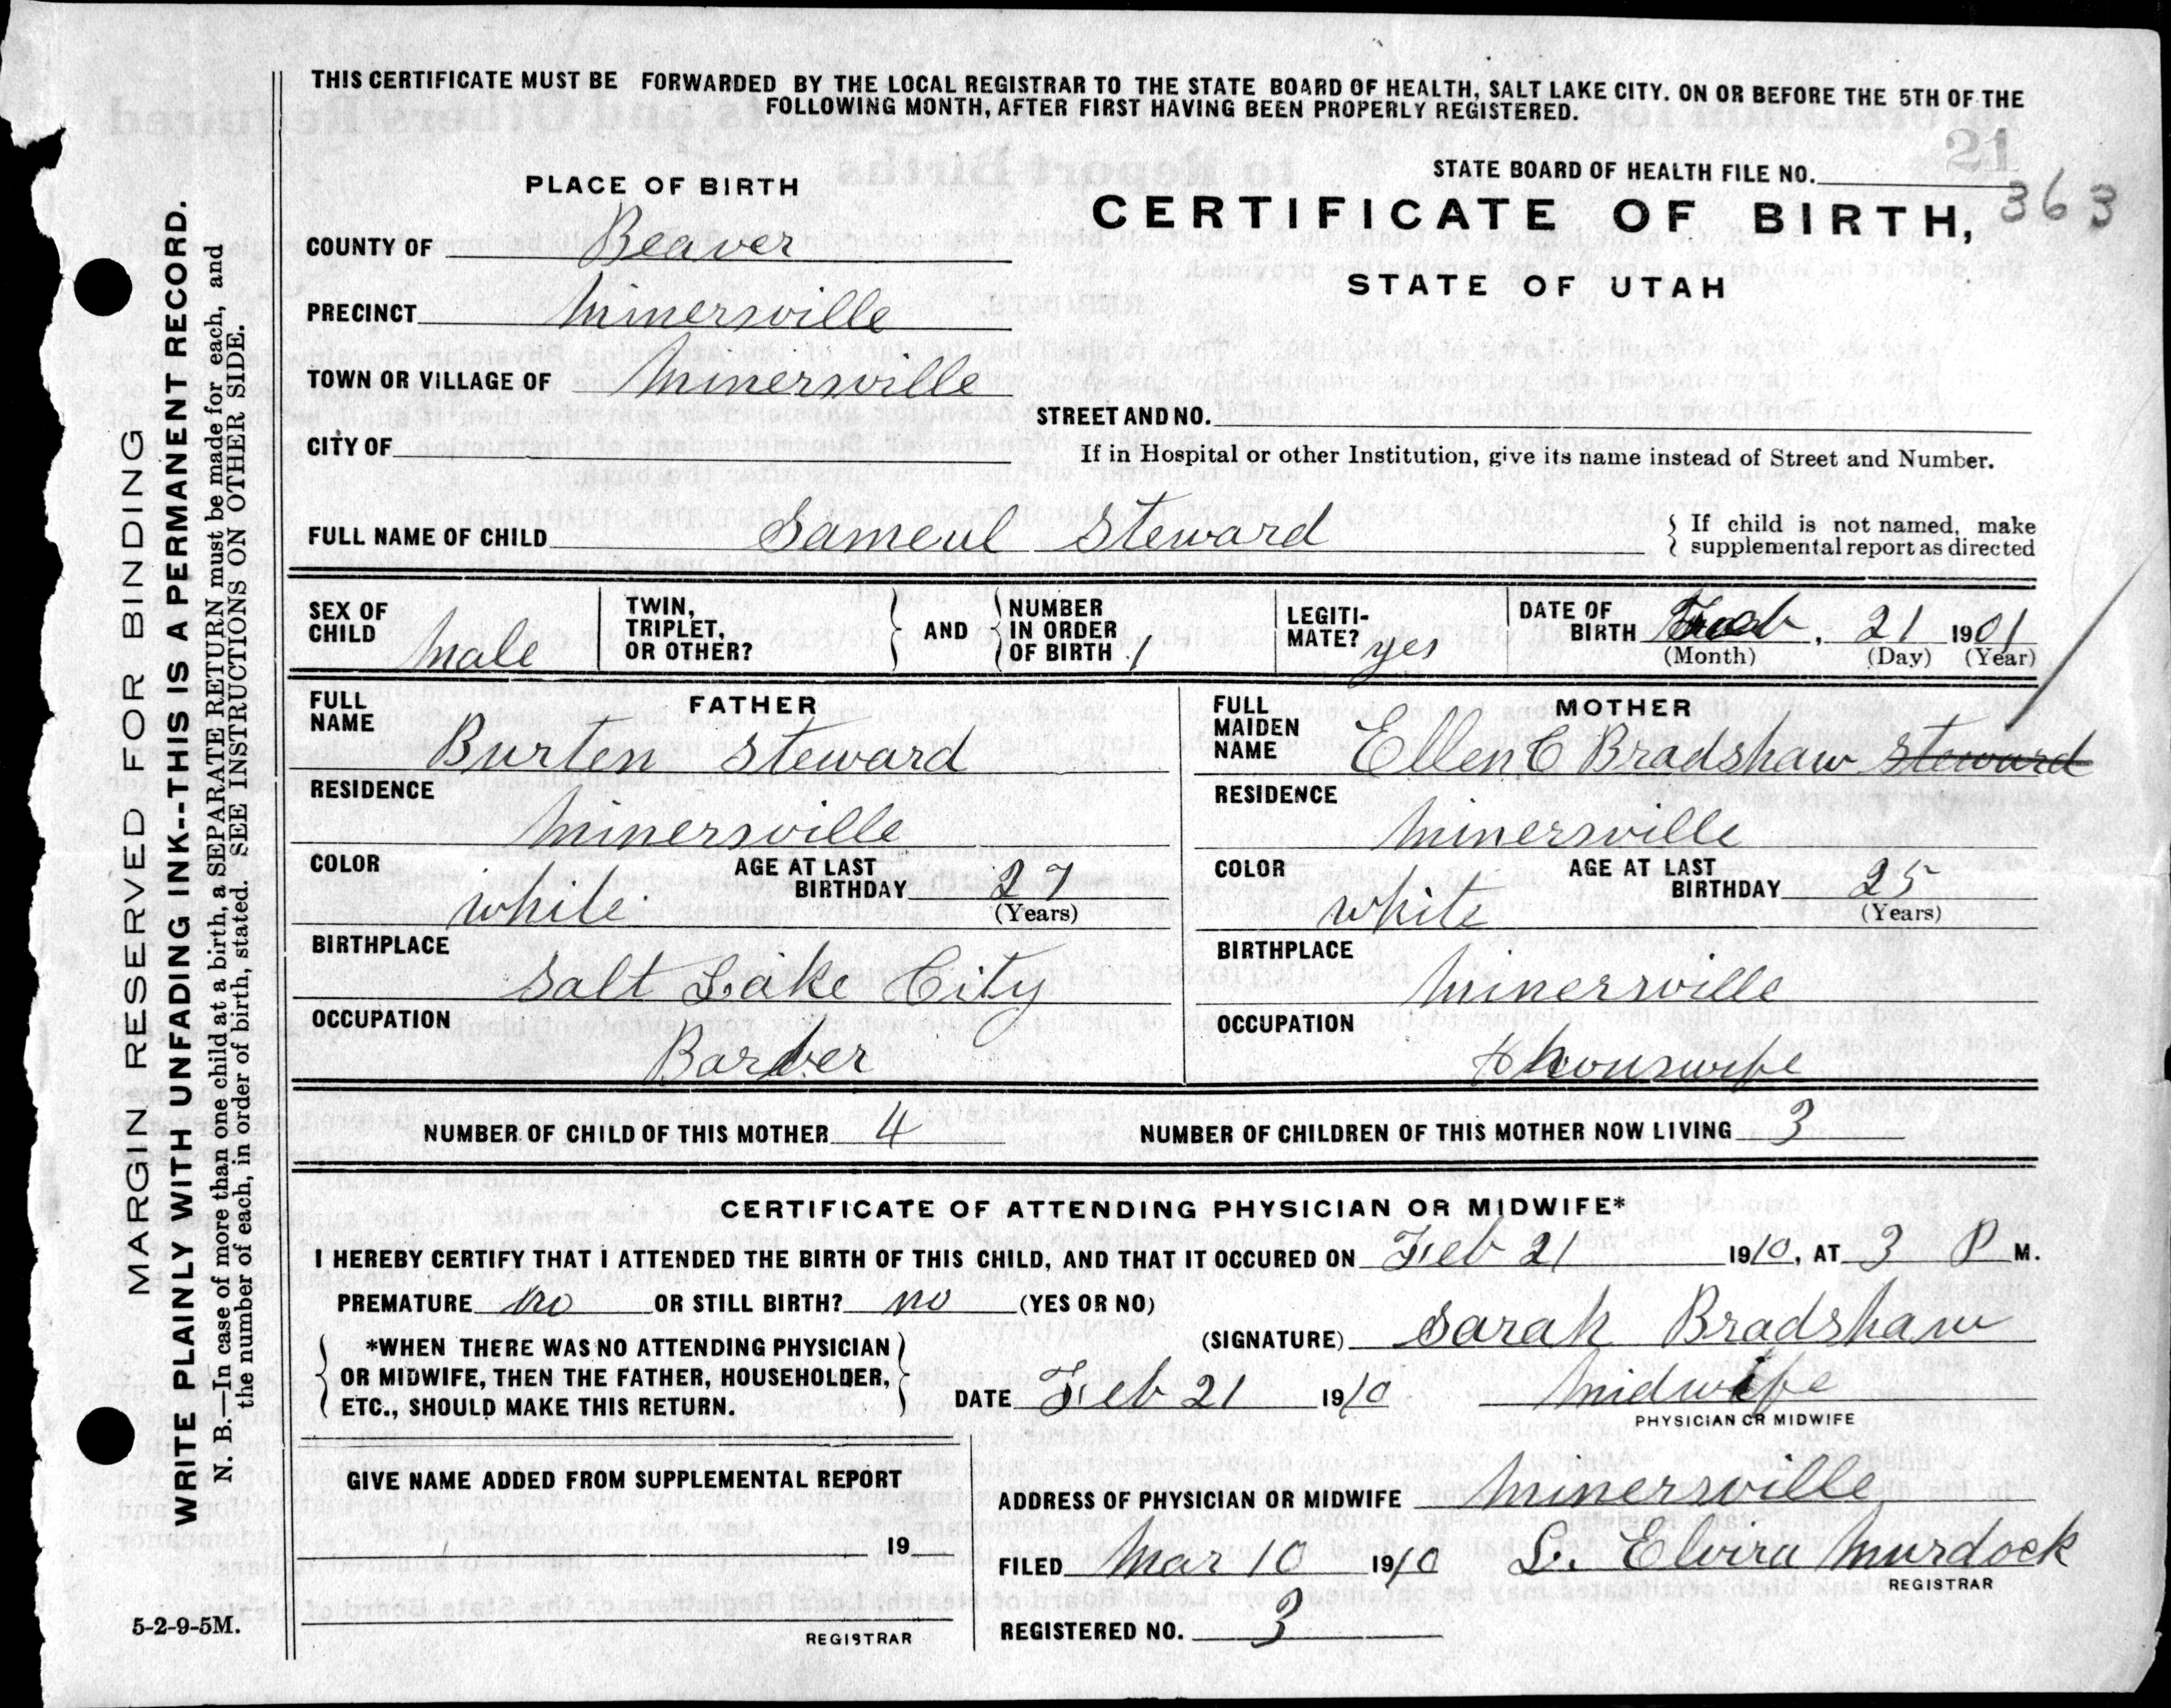 THIS CERTIFICATE MUST BE FORWARDED BY THE LOCAL REGISTRAR TO THE STATE BOARD OF HEALTH, SALT LAKE CITY. ON OR BEFORE THE 5TH OF THE
FOLLOWING MONTH, AFTER FIRST HAVING BEEN PROPERLY REGISTERED.
21
STATE BOARD OF HEALTH FILE NO.
363
PLACE OF BIRTH
CERTIFICATE OF BIRTH,
STATE OF UTAH
COUNTY OF Beaver
PRECINCT Minersville
TOWN OR VILLAGE OF Minersville
STREET AND NO.
CITY OF
If in Hospital or other Institution, give its name instead of Street and Number.
FULL NAME OF CHILD Sameul Steward
If child is not named, make
supplemental report as directed
SEX OF
CHILD Male
TWIN,
TRIPLET,
OR OTHER?
AND
NUMBER
IN ORDER
OF BIRTH 1
LEGITI-
MATE? yes
DATE OF
BIRTH Feb, 21 1901
(Month) (Day) (Year)
FATHER
FULL
NAME
Burten Steward
RESIDENCE
Minersville
COLOR
white
AGE AT LAST
BIRTHDAY 27
(Years)
BIRTHPLACE
Salt Lake City
OCCUPATION
Barber
MOTHER
FULL
MAIDEN
NAME
Ellen C Bradshaw Steward
RESIDENCE
Minersville
COLOR
white
AGE AT LAST
BIRTHDAY 25
(Years)
BIRTHPLACE
Minersville
OCCUPATION
houswife
NUMBER OF CHILD OF THIS MOTHER 4
NUMBER OF CHILDREN OF THIS MOTHER NOW LIVING 3
CERTIFICATE OF ATTENDING PHYSICIAN OR MIDWIFE*
I HEREBY CERTIFY THAT I ATTENDED THE BIRTH OF THIS CHILD, AND THAT IT OCCURED ON Feb 21 1910, AT 3 P M.
PREMATURE no OR STILL BIRTH? no (YES OR NO)
(SIGNATURE) Sarah Bradshaw
*WHEN THERE WAS NO ATTENDING PHYSICIAN
OR MIDWIFE, THEN THE FATHER, HOUSEHOLDER,
ETC., SHOULD MAKE THIS RETURN.
DATE Feb 21 1910
Midwife
PHYSICIAN OR MIDWIFE
GIVE NAME ADDED FROM SUPPLEMENTAL REPORT
19
REGISTRAR
ADDRESS OF PHYSICIAN OR MIDWIFE Minersville
FILED Mar 10 1910 L. Elvira Murdock
REGISTRAR
REGISTERED NO. 3
5-2-9-5M.
MARGIN RESERVED FOR BINDING
WRITE PLAINLY WITH UNFADING INK--THIS IS A PERMANENT RECORD.
N. B.—In case of more than one child at a birth, a SEPARATE RETURN must be made for each, and
the number of each, in order of birth, stated. SEE INSTRUCTIONS ON OTHER SIDE.